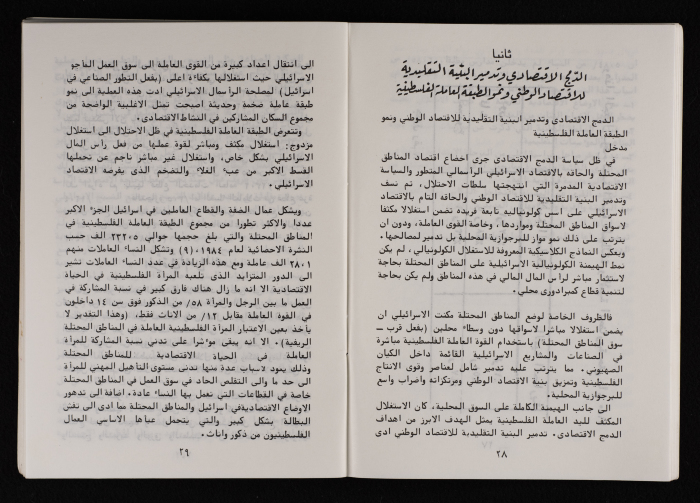 ثانيا
الدمج الاقتصادي وتدمير البنية التقليدية
للاقتصاد الوطني ونمو الطبقة العاملة الفلسطينية
الدمج الاقتصادى وتدمير البنية التقليدية للاقتصاد الوطني ونمو
الطبقة العاملة الفلسطينية
مدخل
في ظل سياسة الدمج الاقتصادى جرى اخضاع اقتصاد المناطق
المحتلة والحاقه بالاقتصاد الاسرايلي الرأسمالي المتطور والسياسة
الاقتصادية المدمرة التي انتهجتها سلطات الاحتلال، تم نسف
وتدمير البنية التقليدية للاقتصاد الوطني والحاقه التام بالاقتصاد
الاسرايلي على اسس كولونيالية تابعة فريده تضمن استغلالا مكثفا
لاسواق المناطق المحتلة ومواردها، وخاصة القوى العاملة، ودون ان
يترتب على ذلك نمو مواز للبرجوازية المحلية بل تدمير لمصالحها.
وبعكس النماذج الكلاسيكية المعروفة للاستغلال الكولونيالي، لم يكن
نمط الهيمنة الكولونيالية الاسرائيلية على المناطق المحتلة بحاجة
لاستثمار مباشر لرأس المال المالي في هذه المناطق ولم يكن بحاجة
لتنمية قطاع كمبرادورى محلي.
فالظروف الخاصة لوضع المناطق المحتلة مكنت الاسرائيلي ان
يضمن استغلالا مباشرا لاسواقها دون وسطاء محلين (بفعل قرب ــ
سوق المناطق المحتلة) باستخدام القوة العاملة الفلسطينية مباشرة
في الصناعات والمشاريع الاسرائيلية القائمة داخل الكيان
الصهيوني. مما يترتب عليه تدمير شامل لعناصر وقوى الانتاج
الفلسطينية وتمزيق بنية الاقتصاد الوطني ومرتكزاته واضراب واسع
للبرجوازية المحلية.
الى جانب الهيمنة الكاملة على السوق المحلية، كان الاستغلال
المكثف لليد العاملة الفلسطينية يمثل الهدف الابرز من اهداف
الدمج الاقتصادى. تدمير البنية التقليدية للاقتصاد الوطني ادى
٢٨
الى انتقال اعداد كبيرة من القوى العاملة الى سوق العمل المأجو
الاسرائيلي حيث استغلالها بكفاءة اعلى (بفعل التطور الصناعي في
اسرائيل) لمصلحة الرأسمال الاسرايلي ادت هذه العملية الى نمو
طبقة عاملة ضخمة وحديثة اصبحت تمثل الاغلبية الواضحة من
مجموع السكان المشاركين في النشاط الاقتصادى.
وتتعرض الطبقة العاملة الفلسطينية في ظل الاحتلال الى استغلال
مزدوج: استغلال مكثف ومباشر لقوة عملها من فعل رأس المال
الاسرايلي بشكل خاص، واستغلال غير مباشر ناجم عن تحملها
القسط الاكبر من عبء الغلاء والتضخم الذى يفرضه الاقتصاد
الاسرايلي.
ويشكل عمال الضفة والقطاع العاملين في اسرائيل الجزء الاكبر
عددا والاكثر تطورا من مجموع الطبقة العاملة الفلسطينية في
المناطق المحتلة والتي بلغ حجمها حوالي ٢٣٢٠٥ الف حسب
النشرة الاحصائية لعام ١٩٨٤.(٩) وتشكل النساء العاملات منهم
٣٨٠١ الف عاملة ومع هذه الزيادة في عدد النساء العاملات تشير
الى الدور المتزايد الذى تلعبه المرأة الفلسطينية في الحياة
الاقتصادية الا انه ما زال هناك فارق كبير في نسبة المشاركة في
العمل ما بين الرجل والمرأة ٥٨٪ من الذكور فوق سن ١٤ داخلون
في القوة العاملة مقابل ١٢٪ من الاناث فقط، (وهذا التقدير لا
يأخذ بعين الاعتبار المرأة الفلسطينية العاملة في المناطق المحتلة
الريفية). الا انه يبقى مؤشرا على تدني نسبة المشاركة للمرأة
العاملة في الحياة الاقتصادية للمناطق المحتلة
وذلك يعود لاسباب عدة منها تدني مستوى التأهيل المهني للمرأة
الى حد ما والى التقلص الحاد في سوق العمل في المناطق المحتلة
خاصة في القطاعات التي تعمل بها النساء عادة. اضافة الى تدهور
الاوضاع الاقتصادية في اسرائيل والمناطق المحتلة مما ادى الى تفشي
البطالة بشكل كبير والتي يتحمل عبأها الاساسي العمال
الفلسطينيون من ذكور واناث.
٢٩